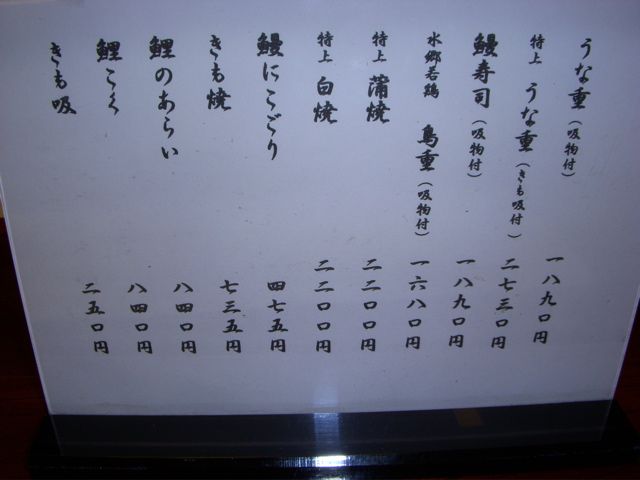 うな重（吸物付） 一八九０円
特上 うな重（きも吸付） 二七三０円
鰻寿司（吸物付） 一八九０円
水郷若鶏 鳥重（吸物付） 一六八０円
特上 蒲焼 二二００円
特上 白焼 二二００円
鰻にこごり 四七五円
きも焼 七三五円
鯉のあらい 八四０円
鯉こく 八四０円
きも吸 二五０円